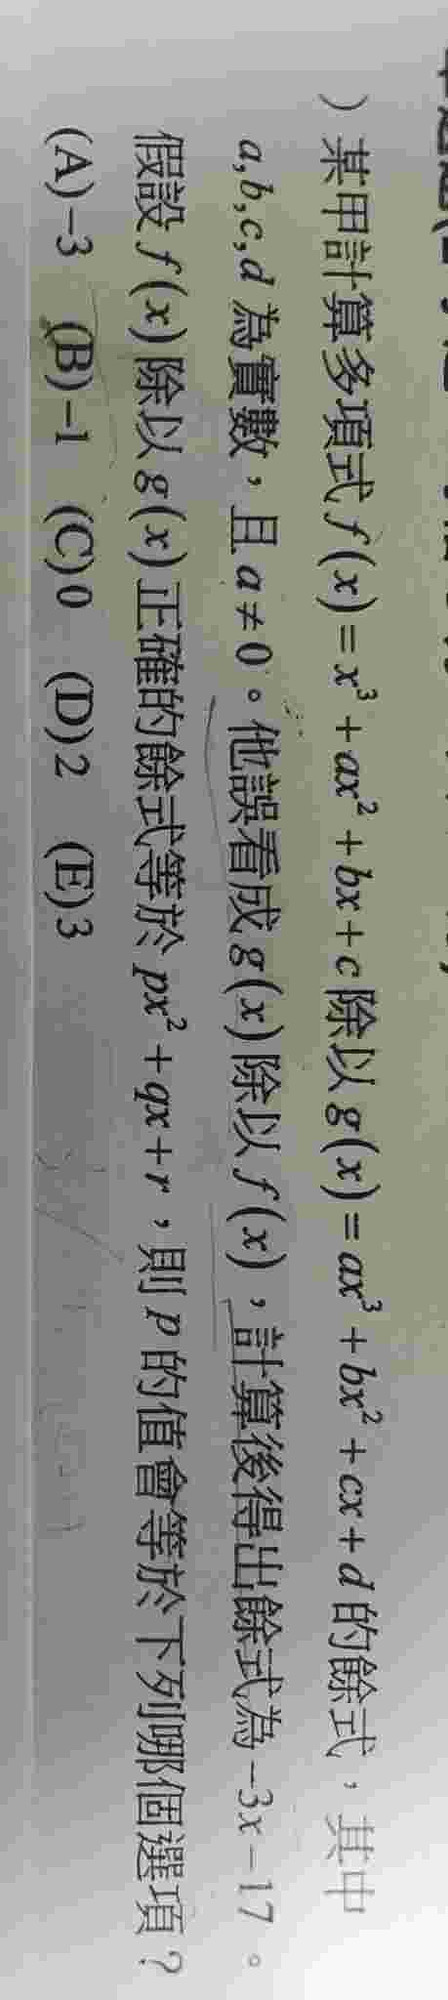 )某甲計算多項式 f(x)=x³+ax²+bx+c 除以 g(x)=ax³+bx²+cx+d 的餘式，其中
a,b,c,d 為實數，且 a≠0。他誤看成 g(x) 除以 f(x)，計算後得出餘式為 -3x-17。
假設 f(x) 除以 g(x) 正確的餘式等於 px²+qx+r，則 p 的值會等於下列哪個選項？
(A)-3 (B)-1 (C)0 (D)2 (E)3